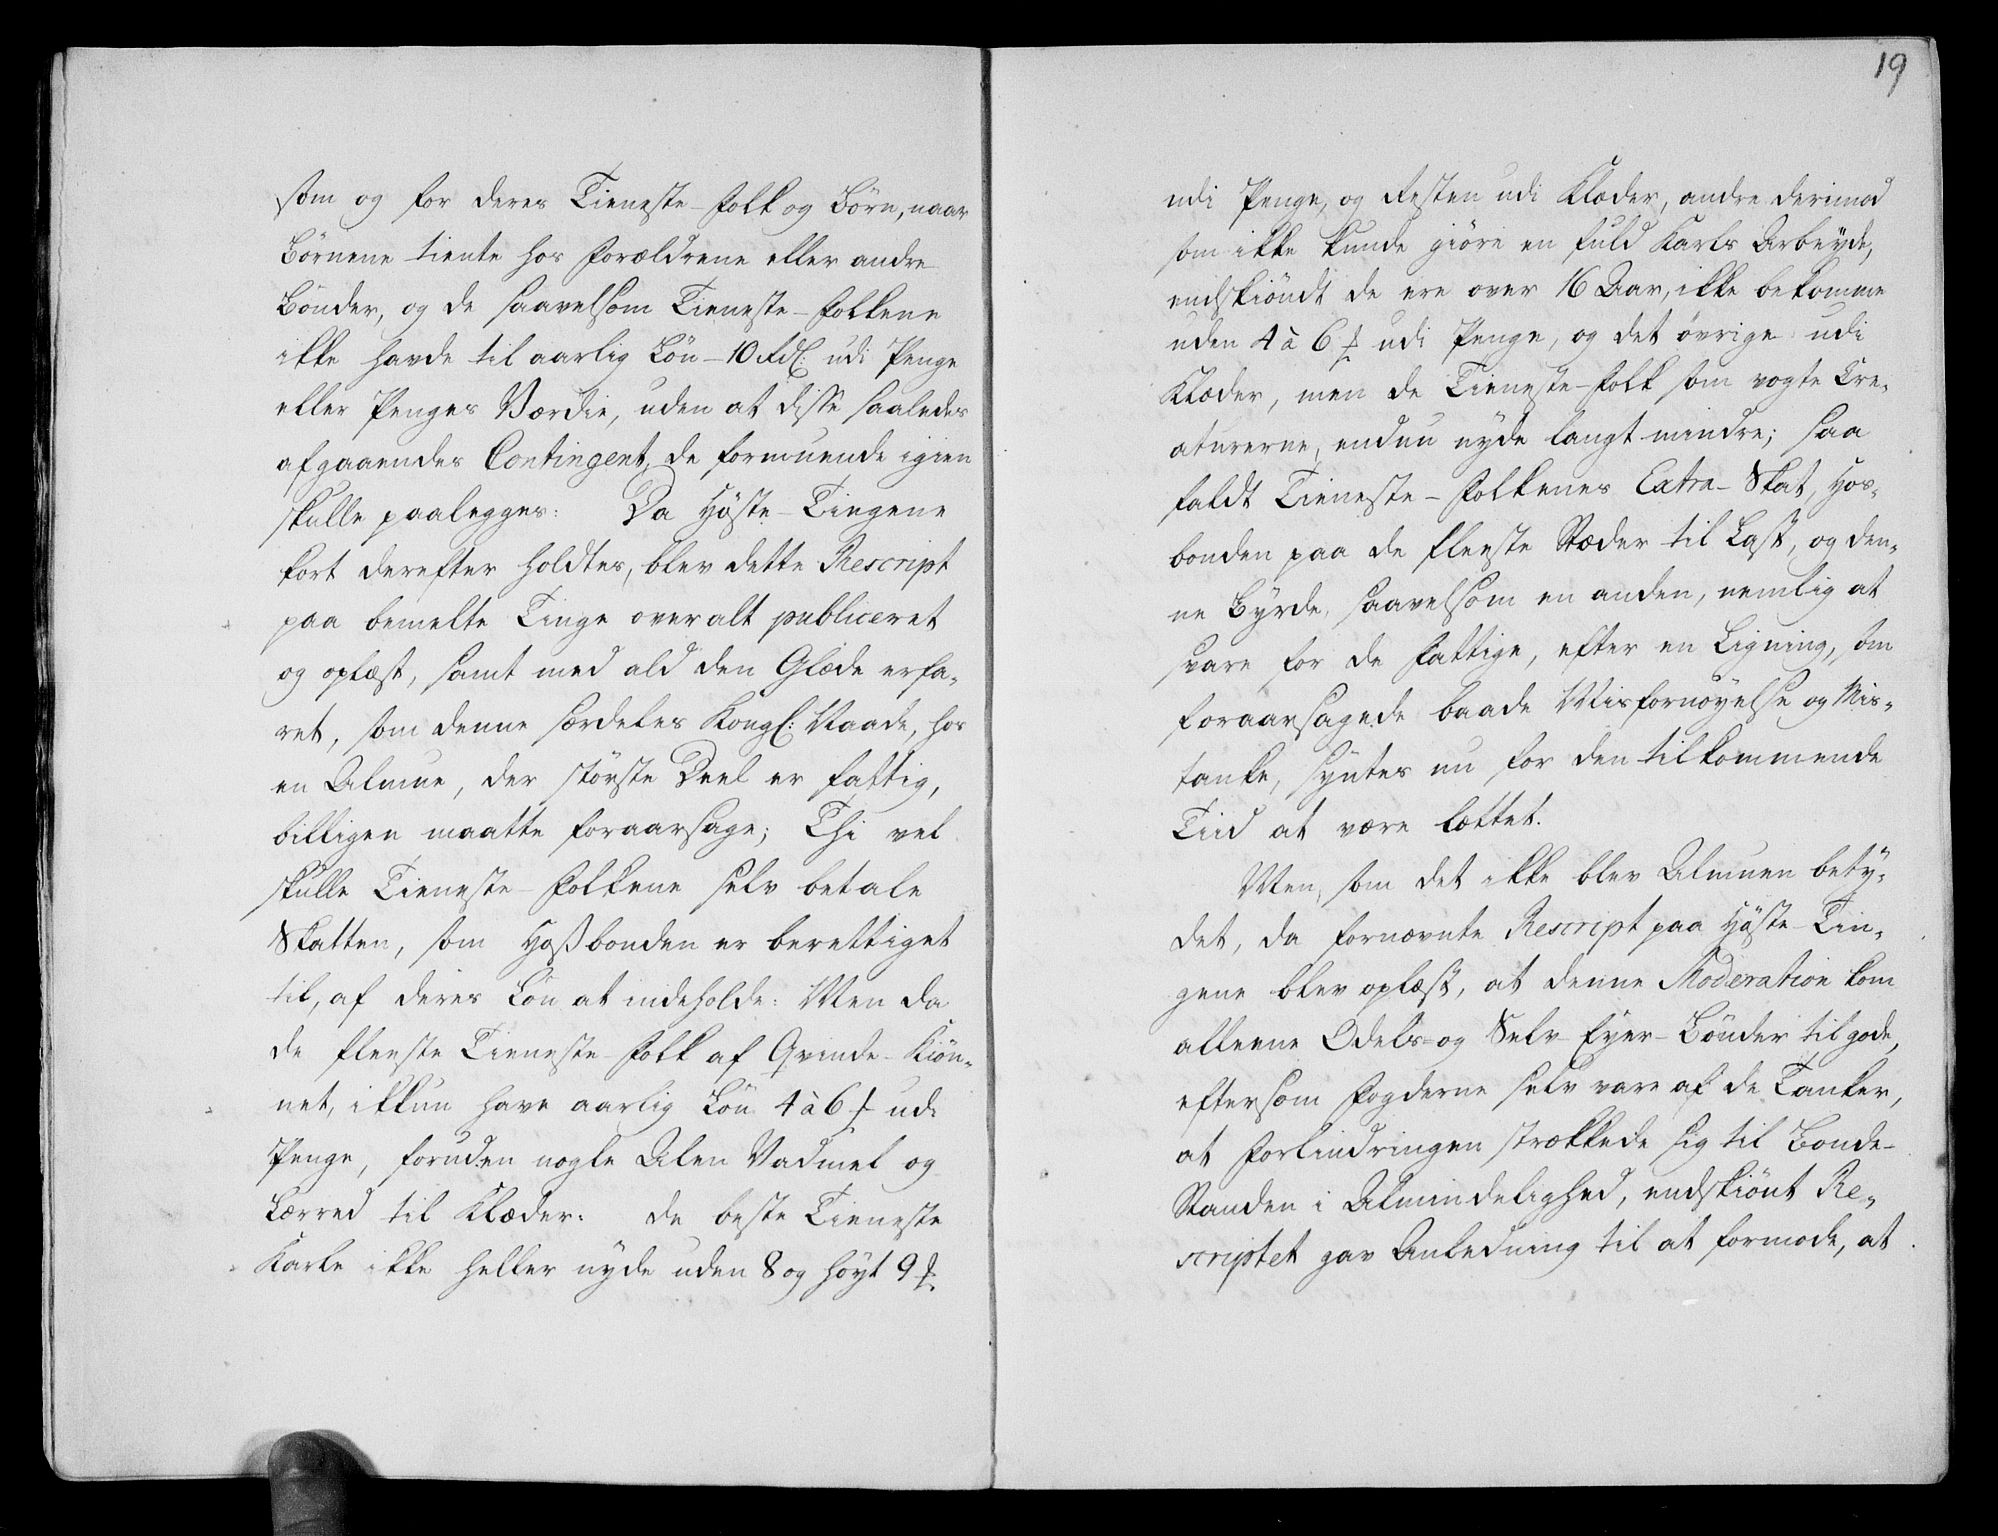 som og for deres Tieneste-Folk og Børn, naar
Børnene tiente hos Forældrene eller andre
Bønder, og de saavelsom Tieneste-Folkene
ikke havde til aarlig Løn - 10 Rdl: udi Penge
eller Penges Værdie, uden at disse saaledes
afgaaendes Contingent, de formuende igien
skulle paalegges: Da Høste-Tingene
kort derefter holdtes, blev dette Rescript
paa bemelte Tinge over alt publiceret
og oplæst, samt med ald den Glæde erfa-
ret, som denne særdeles Kongl: Naade, hos
en Almue, der største Deel er fattig,
billigen maatte foraarsage; Thi vel
skulle Tieneste-Folkene selv betale
Skatten, som Hosbonden er berettiget
til, af deres Løn at indeholde: Men da
de fleeste Tieneste-Folk af Qvinde-Kiøn-
net, ikkun have aarlig Løn 4 à 6 udi
Penge, foruden nogle Alen Vadmel og
Lærred til Klæder: de beste Tieneste
Karle ikke heller nyde uden 8 og høyt 9
19
udi Penge, og Resten udi Klæder, andre derimod
som ikke kunde giøre en fuld Karls Arbeyde,
endskiøndt de ere over 16 Aar, ikke bekomme
uden 4 à 6 udi Penge, og det øvrige udi
Klæder, men de Tieneste-Folk som vogte Cre-
aturerne, endnu nyde langt mindre; saa
faldt Tieneste-Folkenes Extra-Skat, Hos-
bonden paa de fleeste Stæder til Last, og den-
ne Byrde, saavelsom en anden, nemlig at
svare for de Fattige, efter en Ligning, som
foraarsagede baade Misfornøyelse og Mis-
tanke, syntes nu for den tilkommende
Tiid at være lættet.
Men, som det ikke blev Almuen bety-
det, da fornævnte Rescript paa Høste-Tin-
gene blev oplæst, at denne Moderation kom
alleene Odels- og Selv-Eyer-Bønder til gode,
eftersom Fogderne selv vare af de Tanker,
at Forlindringen strækkede sig til Bonde-
Standen i Almindelighed, endskiønt Re-
scriptet gav Anledning til at formode, at